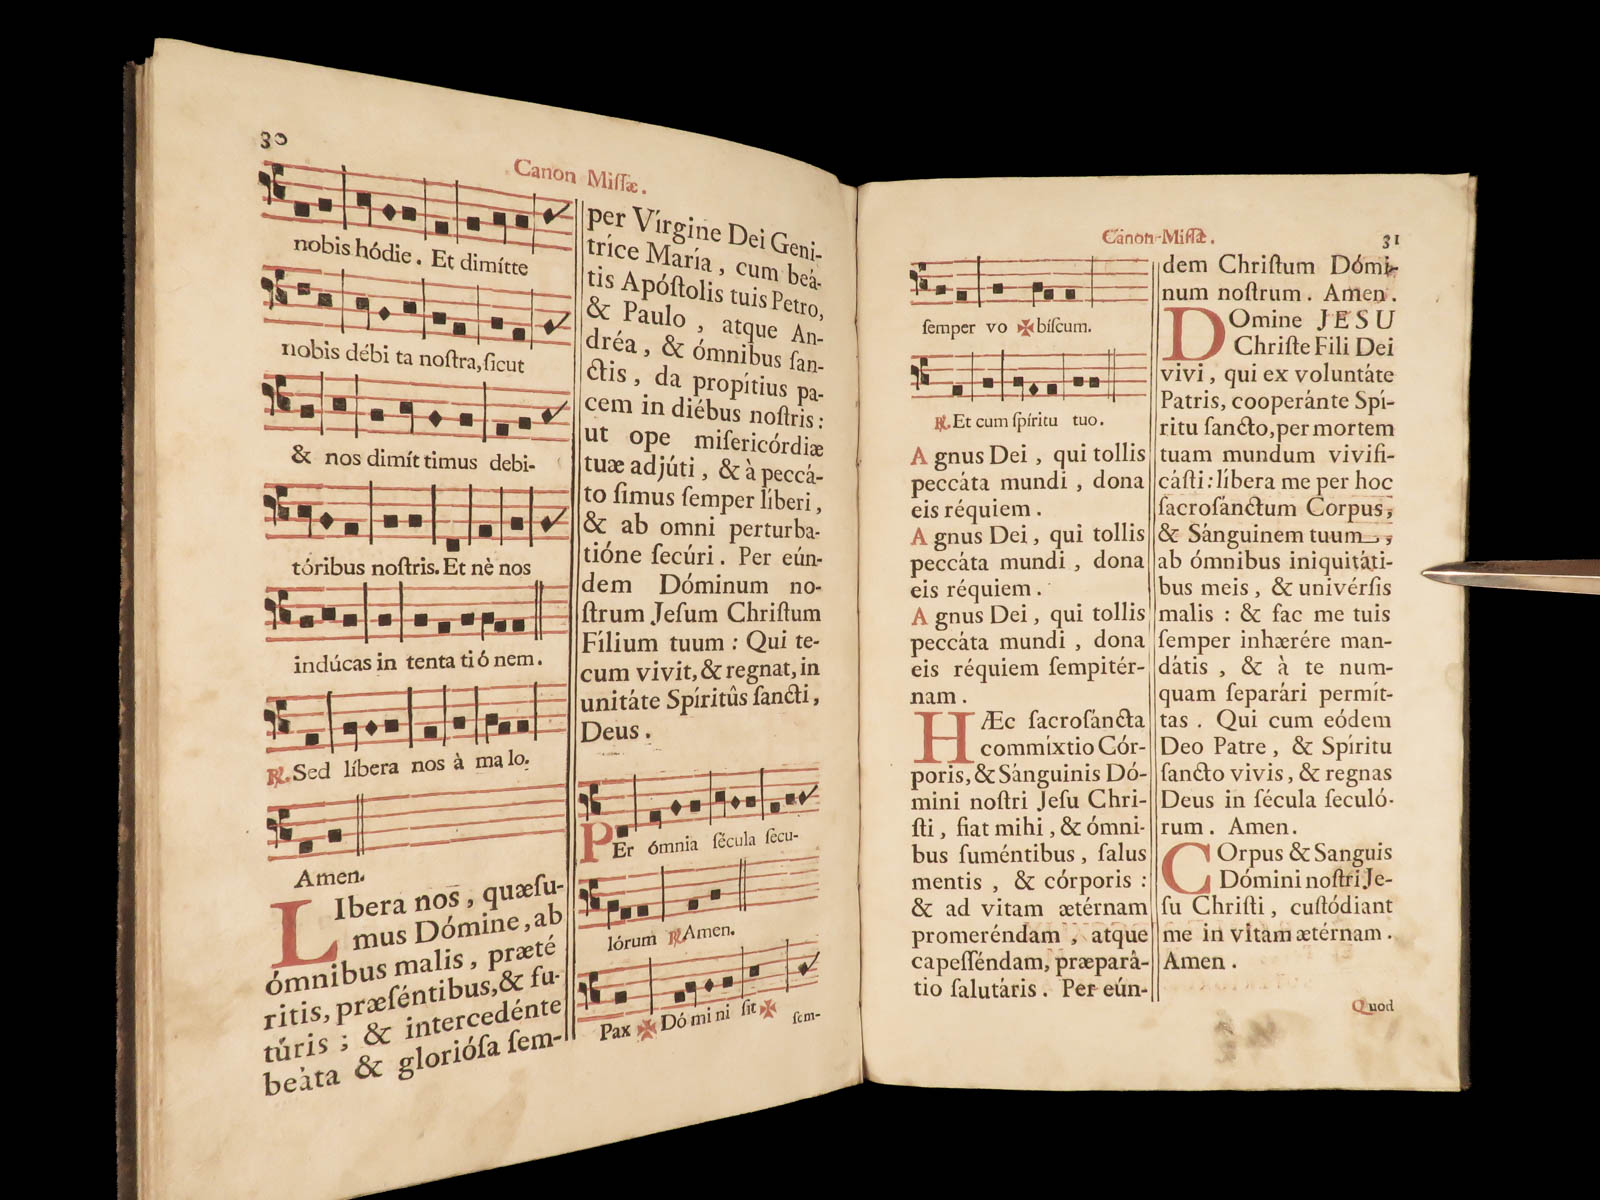 30
Canon Miſſæ.
nobis hódie. Et dimítte
nobis débi ta noſtra, ſicut
& nos dimít timus debi-
tóribus noſtris. Et nè nos
indúcas in tenta ti ó nem.
℟. Sed líbera nos à ma lo.
Amen.
LIbera nos, quæſu-
mus Dómine, ab
ómnibus malis, præté
ritis, præſéntibus, & fu-
túris ; & intercedénte
beàta & glorióſa ſem-
per Vírgine Dei Geni-
tríce María, cum beá-
tis Apóſtolis tuis Petro,
& Paulo, atque An-
dréa, & ómnibus ſan-
ctis, da propítius pa-
cem in diébus noſtris :
ut ope miſericórdiæ
tuæ adjúti, & à peccá-
to ſimus ſemper líberi,
& ab omni perturba-
tióne ſecúri. Per eún-
dem Dóminum no-
ſtrum Jeſum Chriſtum
Fílium tuum : Qui te-
cum vivit, & regnat, in
unitáte Spíritûs ſancti,
Deus.
PEr ómnia ſécula ſecu-
lórum ℟. Amen.
Pax ✠ Dó mi ni ſit ✠ ſem-
Canon Miſſæ.
31
ſemper vo ✠ biſcum.
℟. Et cum ſpíritu tuo.
A gnus Dei, qui tollis
peccáta mundi, dona
eis réquiem.
A gnus Dei, qui tollis
peccáta mundi, dona
eis réquiem.
A gnus Dei, qui tollis
peccáta mundi, dona
eis réquiem ſempitér-
nam.
HÆc ſacroſáncta
commíxtio Cór-
poris, & Sánguinis Dó-
mini noſtri Jeſu Chri-
ſti, fiat mihi, & ómni-
bus ſuméntibus, ſalus
mentis, & córporis :
& ad vitam ætérnam
promeréndam, atque
capeſſéndam, præparâ-
tio ſalutáris. Per eún-
dem Chriſtum Dómi-
num noſtrum. Amen.
DOmine JESU
Chriſte Fili Dei
vivi, qui ex voluntáte
Patris, cooperánte Spí-
ritu ſancto, per mortem
tuam mundum vivifi-
cáſti : líbera me per hoc
ſacroſánctum Corpus,
& Sánguinem tuum,
ab ómnibus iniquitáti-
bus meis, & univérſis
malis : & fac me tuis
ſemper inhærére man-
dátis, & à te num-
quam ſeparári permít-
tas. Qui cum eódem
Deo Patre, & Spíritu
ſancto vivis, & regnas
Deus in ſécula ſeculó-
rum. Amen.
COrpus & Sanguis
Dómini noſtri Je-
ſu Chriſti, cuſtódiant
me in vitam ætérnam.
Amen.
Quod